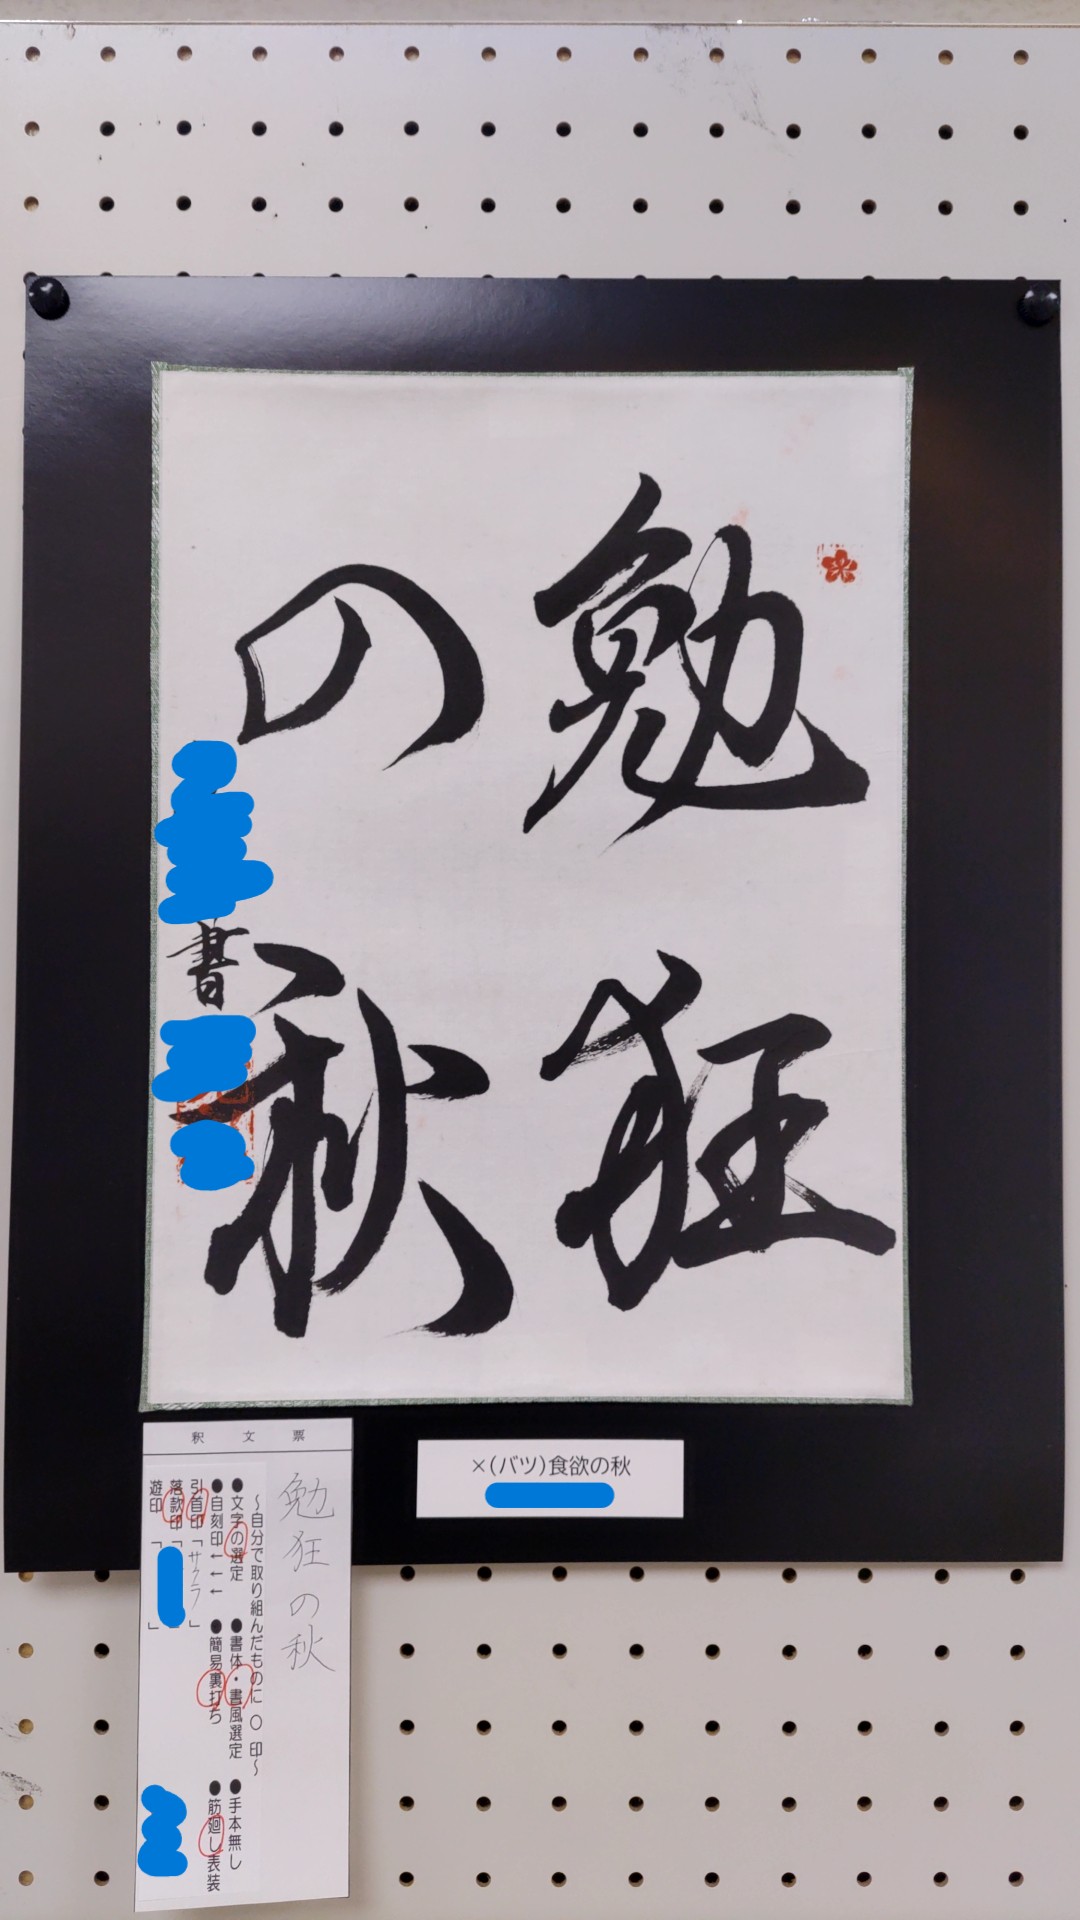 勉狂
の秋
書
×(バツ)食欲の秋
釈文票
勉狂の秋
～自分で取り組んだものに○印～
●文字の選定 ●書体・書風選定 ●手本無し
●自刻印←←← ●簡易裏打ち ●筋廻し表装
引首印「サクラ」
落款印「 」
遊印「 」